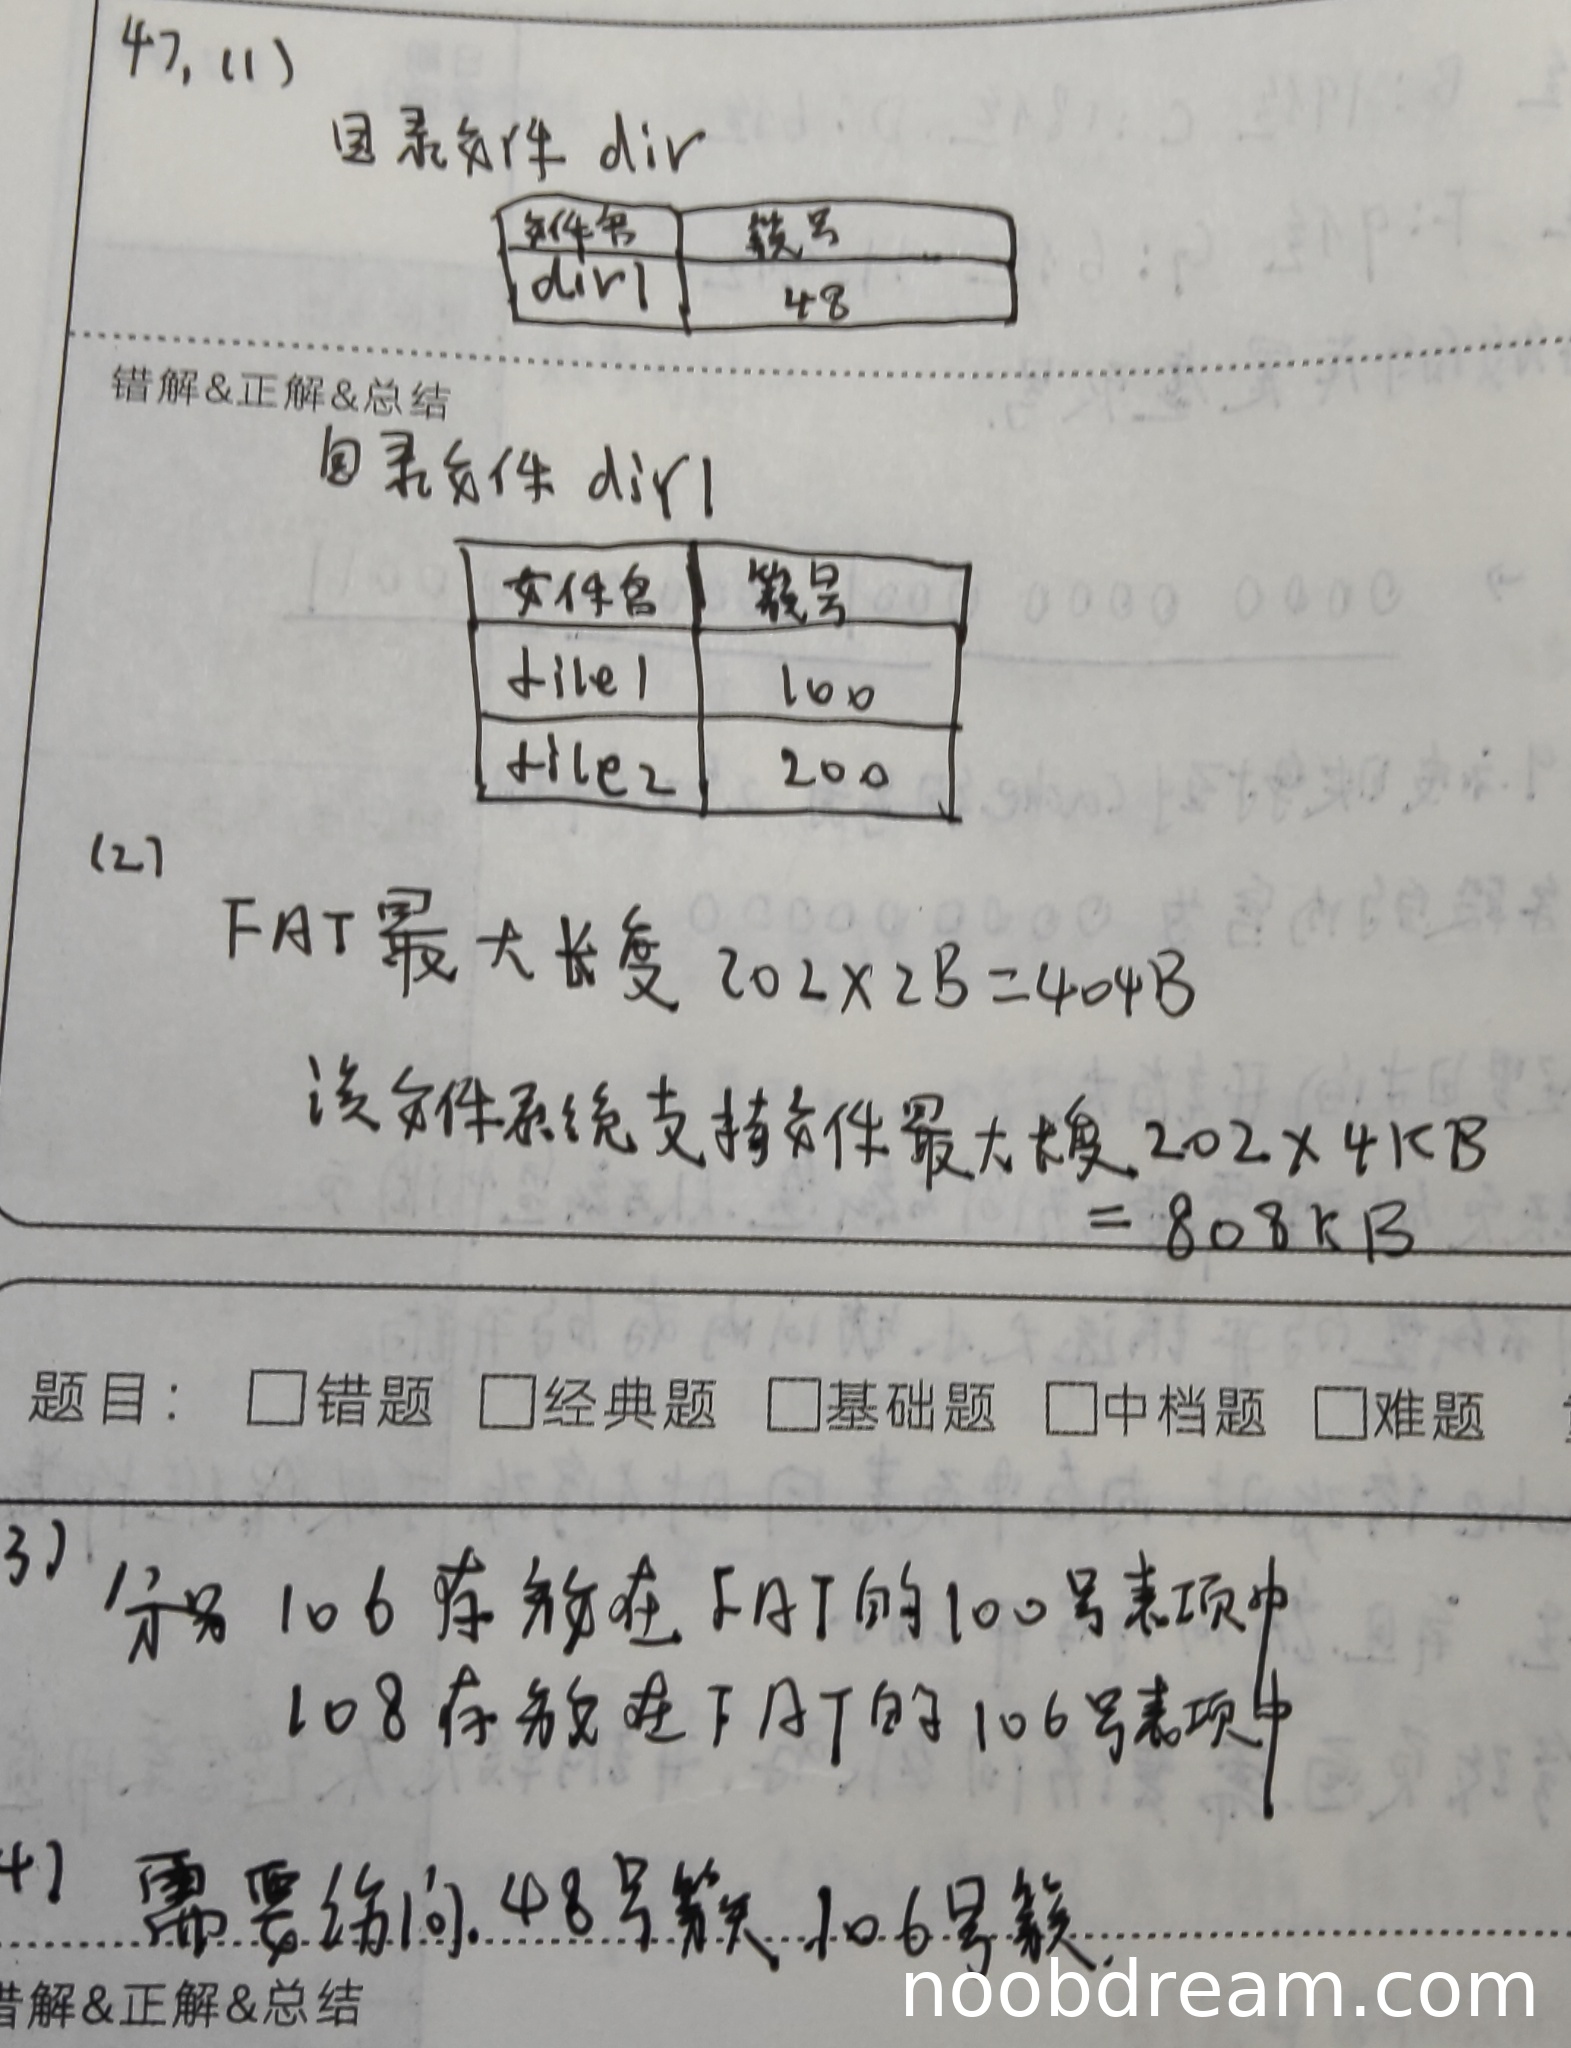 47.(1)
目录文件 dir
文件名 簇号
dir1 48
错解&正解&总结
目录文件 dir1
文件名 簇号
file1 100
file2 200
(2)
FAT最大长度 202×2B=404B
该文件系统支持文件最大长度 202×4KB
=808KB
题目: □错题 □经典题 □基础题 □中档题 □难题
3) 簇号 106 存放在 FAT的100号表项中
108 存放在FAT的 106号表项中
4) 需要访问 48号簇 106号簇.
错解&正解&总结
noobdream.com